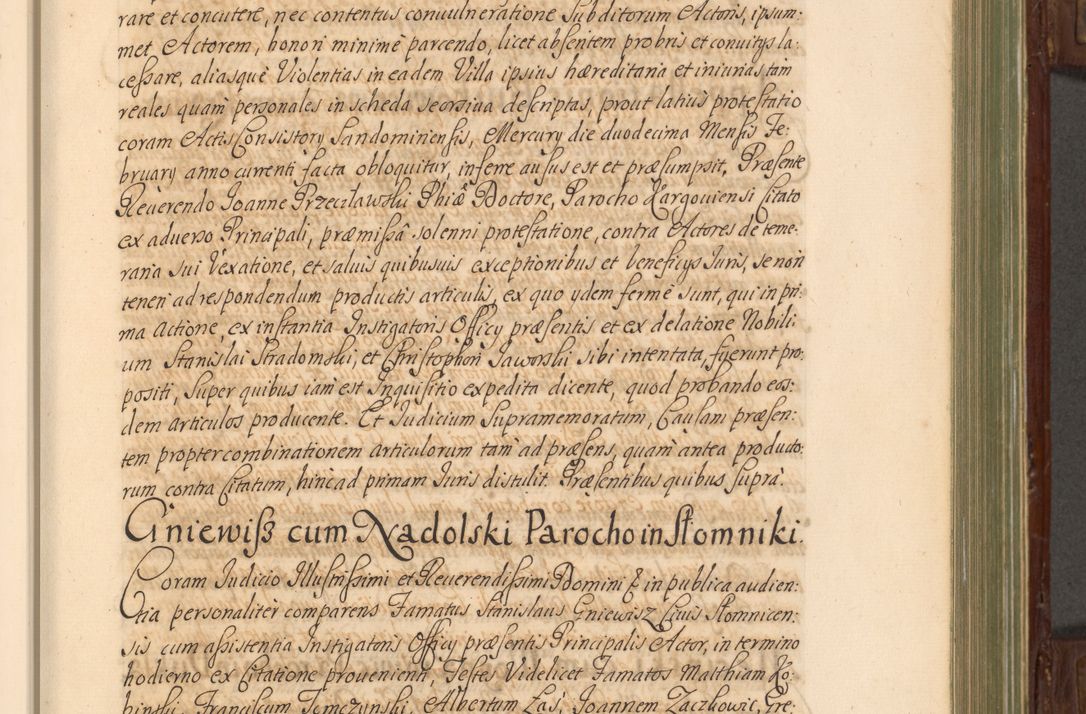 rare et concutere, nec contentus convulneratione Subditorum Actoris, ipsum:
met Actorem, honori minimè parcendo, licet absentem probris et convitys la:
cessare, aliasquè Violentias in eadem Villa ipsius hæreditaria et iniurias tàm
reales quam personales in scheda seorsiva descriptas, prout latius protestatio
coram Actis Consistory Sandomiriensis, Mercury die duodecima Mensis Fe:
bruary anno currenti facta obloquitur, inferre ausus est et præsumpsit, Præsente
Reverendo Joanne Przeczławski Phiæ Doctore, Parocho Kargoviensi Citato
ex adverso Principali, præmissâ solenni protestatione, contra Actores de teme:
raria sui Vexatione, et salvis quibusvis exceptionibus et beneficys Juris, se non
teneri ad respondendum productis articulis, ex quo ydem fermè sunt, qui in pri:
ma Actione, ex instantia Instigatoris Officy præsentis et ex delatione Nobili:
um Stanislai Stradomski, et Christophori Jaworski sibi intentata, fuerunt pro:
positi, super quibus iam est Inquisitio expedita dicente, quod probando eos:
dem articulos producente. Et Judicium supramemoratum, Causam præsen:
tem propter combinationem articulorum tam ad præsens, quam antea producto:
rum contra Citatum, hinc ad primam Juris distulit. Præsentibus quibus suprà.
Gniewisz cum Nadolski Parocho in Słomniki.
Coram Judicio Illustrissimi et Reverendissimi Domini & in publica audien:
tia personalitèr comparens Famatus Stanislaus Gniewisz Civis Słomnicen:
sis cum assistentia Instigatoris Officy præsentis Principalis Actor, in termino
hodierno ex Citatione provenienti, Testes Videlicet Famatos Matthiam Ko:
binski, Franciscum Tomczynski, Albertum Łaś, Joannem Zaczkowic, Gre: